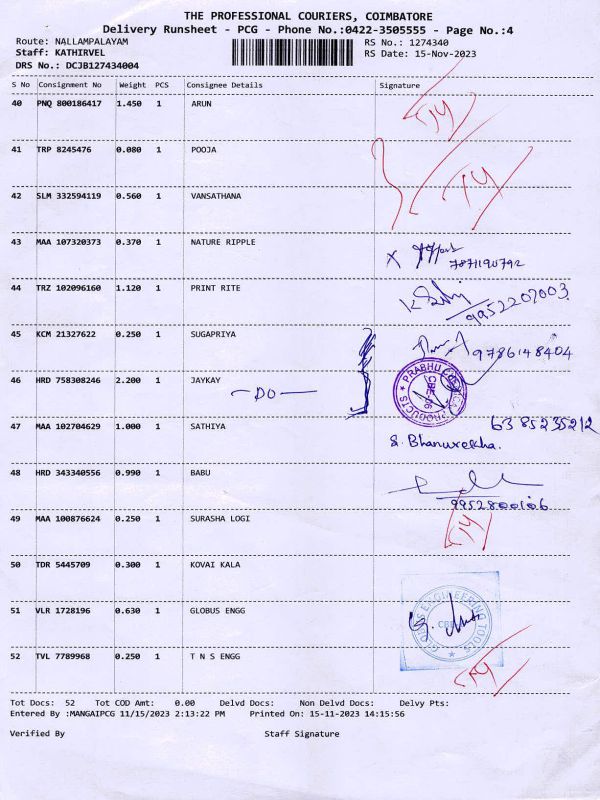 THE PROFESSIONAL COURIERS, COIMBATORE
Delivery Runsheet - PCG - Phone No.:0422-3505555 - Page No.:4
Route: NALLAMPALAYAM RS No.: 1274340
Staff: KATHIRVEL RS Date: 15-Nov-2023
DRS No.: DCJB127434004
S No Consignment No Weight PCS Consignee Details Signature
40 PNQ 800186417 1.450 1 ARUN
41 TRP 8245476 0.080 1 POOJA
42 SLM 332594119 0.560 1 VANSATHANA
43 MAA 107320373 0.370 1 NATURE RIPPLE
7871190792
44 TRZ 102096160 1.120 1 PRINT RITE
9952207003
45 KCM 21327622 0.250 1 SUGAPRIYA
9786148404
46 HRD 758308246 2.200 1 JAYKAY
-DO-
PRABHU PRODUCTS CBE-6
47 MAA 102704629 1.000 1 SATHIYA 6385235212
S. Bhanurekha.
48 HRD 343340556 0.990 1 BABU
9952800106
49 MAA 100876624 0.250 1 SURASHA LOGI
50 TDR 5445709 0.300 1 KOVAI KALA
51 VLR 1728196 0.630 1 GLOBUS ENGG
GLOBUS ENGINEERING TOOLS CBE
52 TVL 7789968 0.250 1 T N S ENGG
Tot Docs: 52 Tot COD Amt: 0.00 Delvd Docs: Non Delvd Docs: Delvy Pts:
Entered By :MANGAIPCG 11/15/2023 2:13:22 PM Printed On: 15-11-2023 14:15:56
Verified By Staff Signature